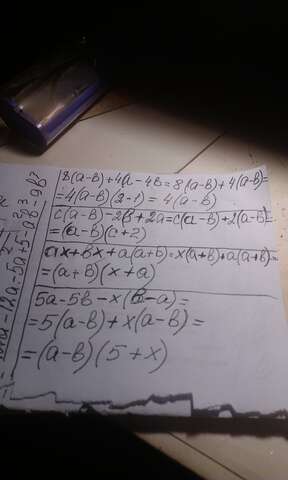 8(a-b)+4a-4b=8(a-b)+4(a-b)=
=4(a-b)(2-1)=4(a-b)
c(a-b)-2b+2a=c(a-b)+2(a-b)=
=(a-b)(c+2)
ax+bx+a(a+b)=x(a+b)+a(a+b)=
=(a+b)(x+a)
5a-5b-x(b-a)=
=5(a-b)+x(a-b)=
=(a-b)(5+x)